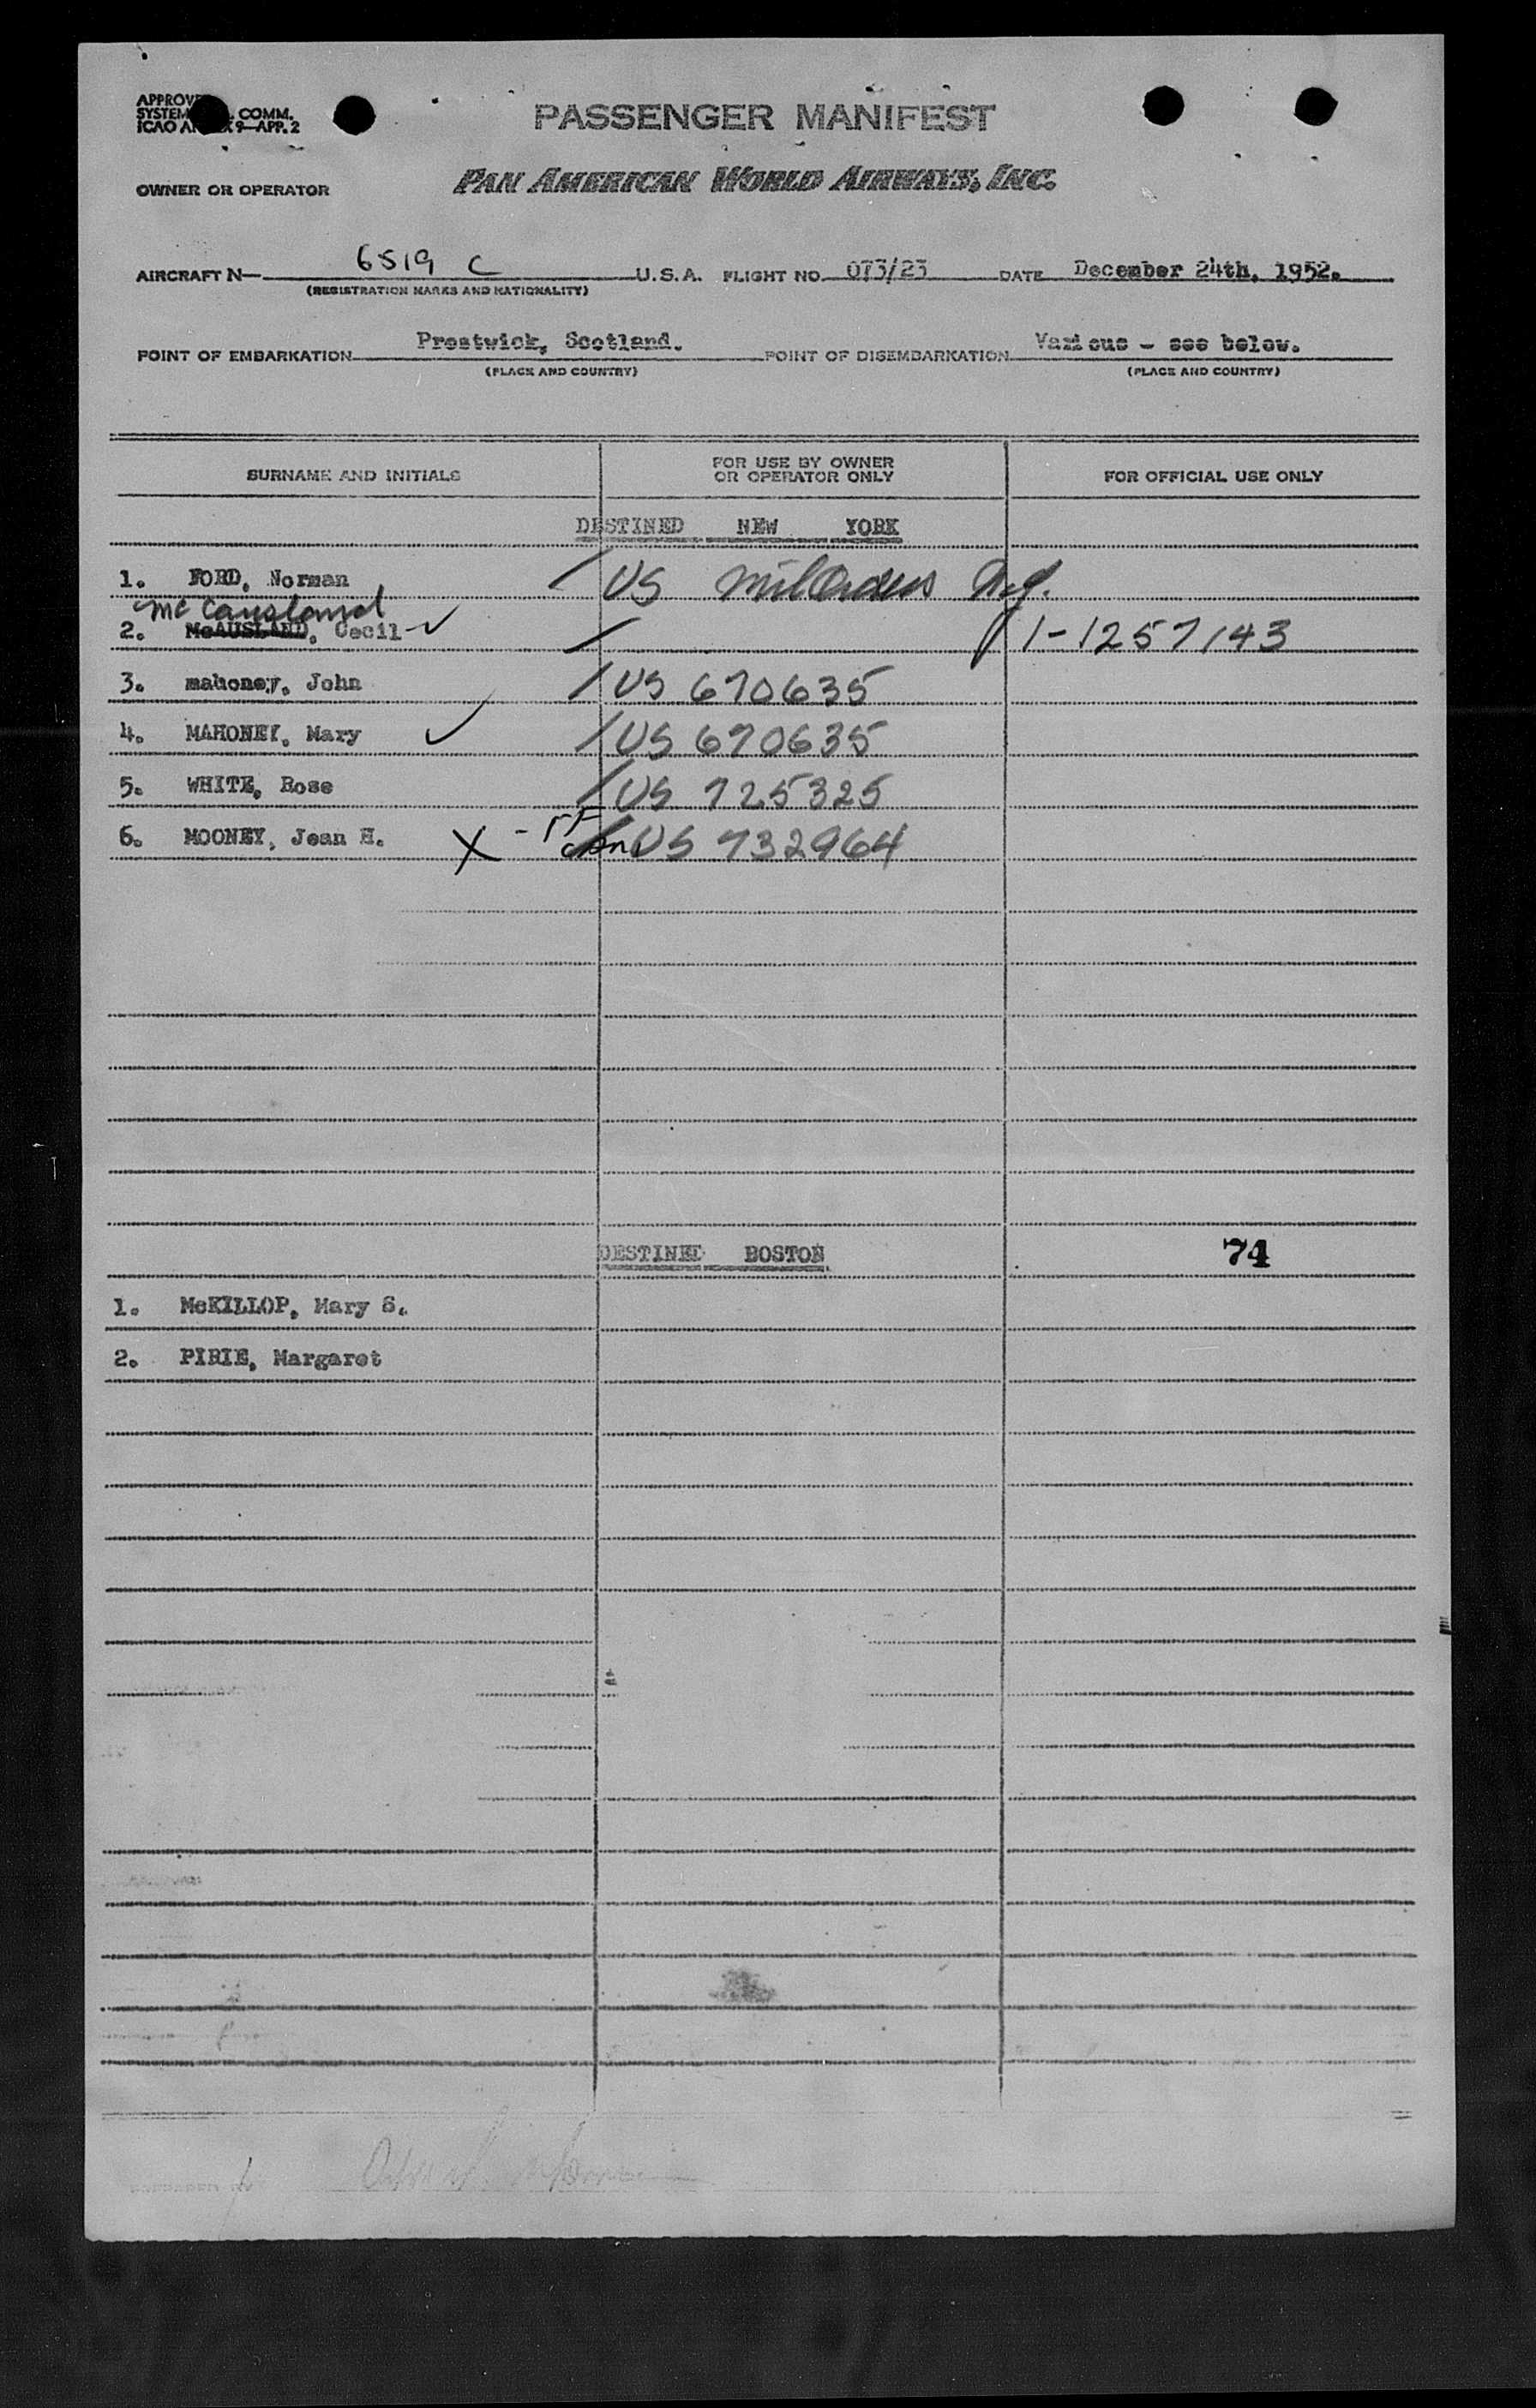 APPROVED
SYSTEM COMM.
ICAO ANNEX 9—APP. 2
PASSENGER MANIFEST
OWNER OR OPERATOR PAN AMERICAN WORLD AIRWAYS, INC.
AIRCRAFT N— 6519 C U.S.A. FLIGHT NO. 073/23 DATE December 24th, 1952.
(REGISTRATION MARKS AND NATIONALITY)
POINT OF EMBARKATION Prestwick, Scotland. POINT OF DISEMBARKATION Various - see below.
(PLACE AND COUNTRY) (PLACE AND COUNTRY)
SURNAME AND INITIALS FOR USE BY OWNER OR OPERATOR ONLY FOR OFFICIAL USE ONLY
DESTINED NEW YORK
1. FORD, Norman / US mil Orders
McCausland
2. McAUSLAND, Cecil ✓ / 1-1257143
3. mahoney, John / US 670635
4. MAHONEY, Mary ✓ / US 670635
5. WHITE, Rose / US 725325
6. MOONEY, Jean H. X - US 732964
DESTINED BOSTON 74
1. McKILLOP, Mary S.
2. PIRIE, Margaret